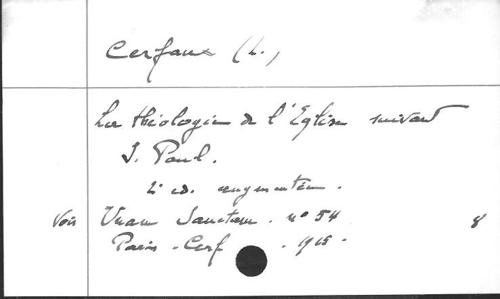 Cerfaux (L.)
La théologie de l'Eglise suivant
S. Paul.
2e éd. augmentée.
voir Unam Sanctam. nº 54 8
Paris - Cerf. - 1965 -